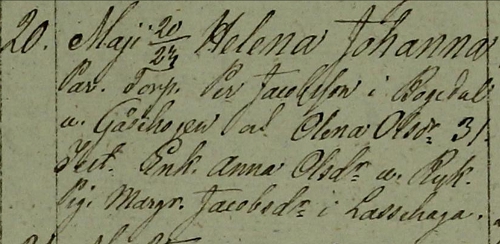 20. Maji 20/23 Helena Johanna
Par. Torp. Per Jacobsson i Bogedal
u. Gåsehogen ol Olena Olsdr 31.
Test. Enk. Anna Olsdr u. Ryk.
Pig. Margr. Jacobsdr i Lassehaga.